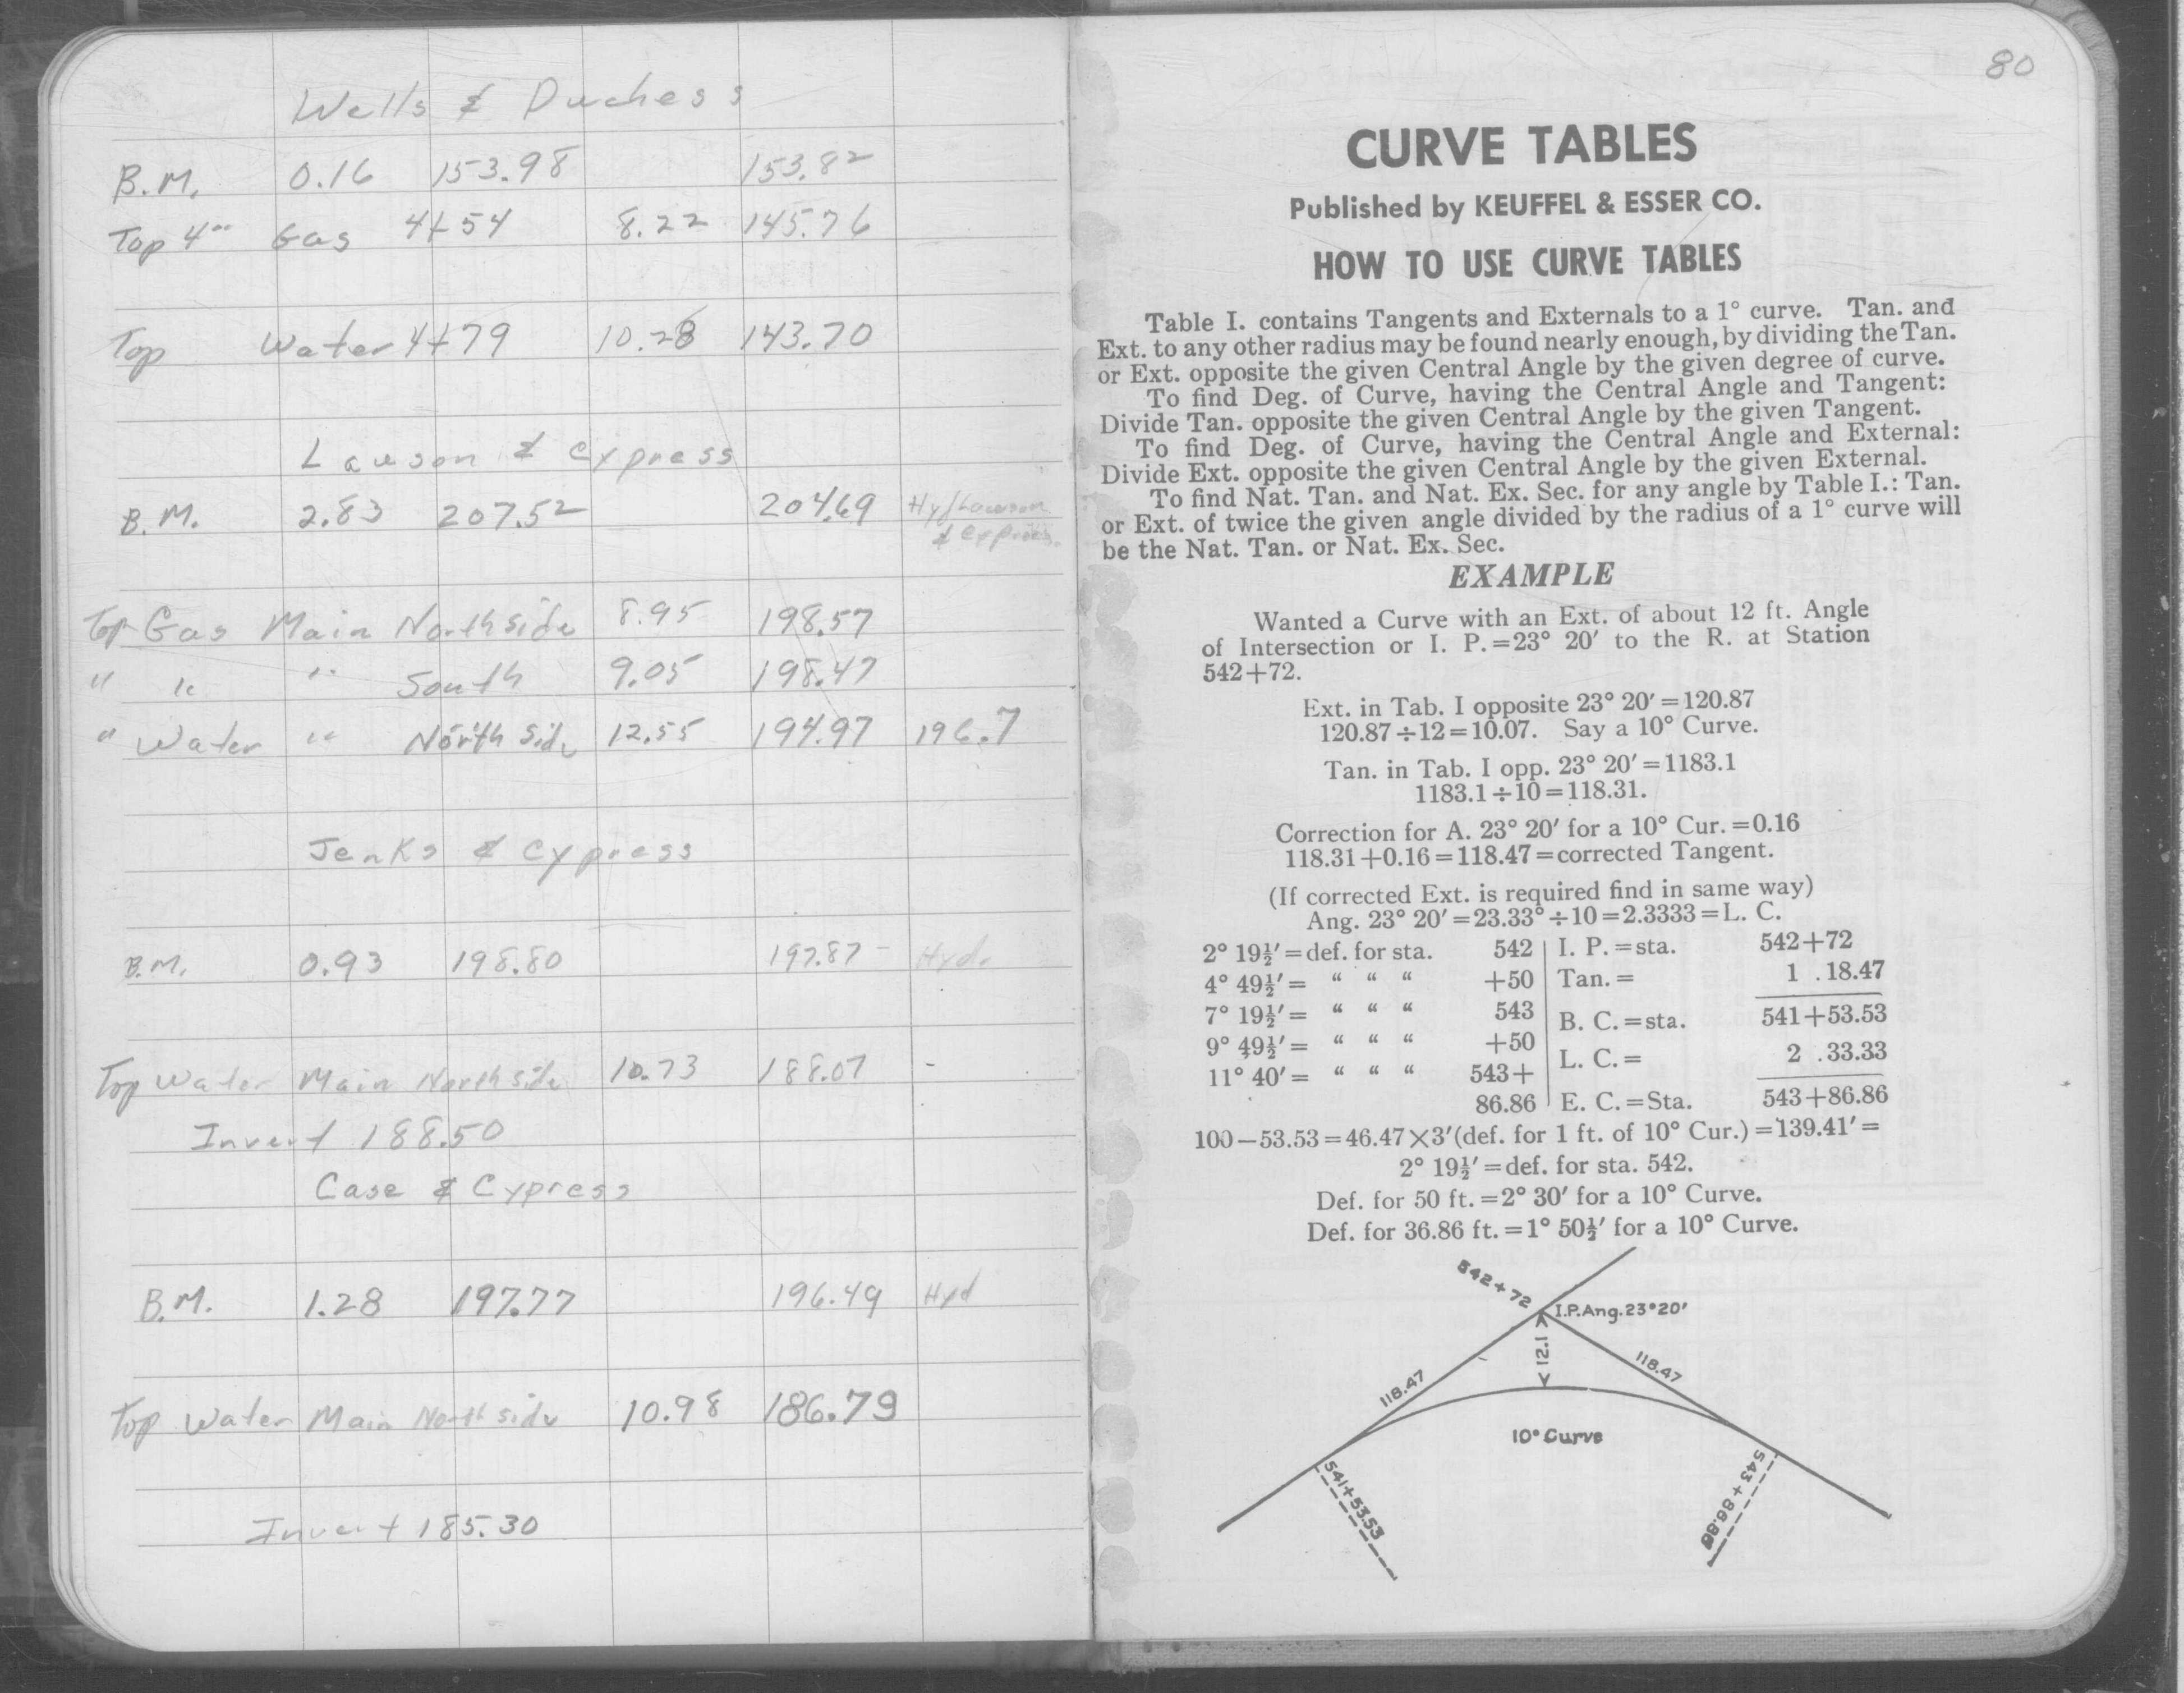 Wells & Duchess
B.M. 0.16 153.98 153.82
Top 4" Gas 4+54 8.22 145.76
Top Water 4+79 10.28 143.70
Lawson & Cypress
B.M. 2.83 207.52 204.69 Hyd Lawson
& Cypress.
Top Gas Main North side 8.95 198.57
" " " South 9.05 198.47
" Water " North Side 12.55 194.97 196.7
Jenks & Cypress
B.M. 0.93 198.80 197.87 - Hyd.
Top Water Main North side 10.73 188.07 -
Invert 188.50
Case & Cypress
B.M. 1.28 197.77 196.49 Hyd
Top Water Main North side 10.98 186.79
Invert 185.30
80
CURVE TABLES
Published by KEUFFEL & ESSER CO.
HOW TO USE CURVE TABLES
Table I. contains Tangents and Externals to a 1° curve. Tan. and
Ext. to any other radius may be found nearly enough, by dividing the Tan.
or Ext. opposite the given Central Angle by the given degree of curve.
To find Deg. of Curve, having the Central Angle and Tangent:
Divide Tan. opposite the given Central Angle by the given Tangent.
To find Deg. of Curve, having the Central Angle and External:
Divide Ext. opposite the given Central Angle by the given External.
To find Nat. Tan. and Nat. Ex. Sec. for any angle by Table I.: Tan.
or Ext. of twice the given angle divided by the radius of a 1° curve will
be the Nat. Tan. or Nat. Ex. Sec.
EXAMPLE
Wanted a Curve with an Ext. of about 12 ft. Angle
of Intersection or I. P.=23° 20′ to the R. at Station
542+72.
Ext. in Tab. I opposite 23° 20′=120.87
120.87÷12=10.07. Say a 10° Curve.
Tan. in Tab. I opp. 23° 20′=1183.1
1183.1÷10=118.31.
Correction for A. 23° 20′ for a 10° Cur.=0.16
118.31+0.16=118.47=corrected Tangent.
(If corrected Ext. is required find in same way)
Ang. 23° 20′=23.33°÷10=2.3333=L. C.
2° 19½′=def. for sta. 542 I. P.=sta. 542+72
4° 49½′= " " " +50 Tan.= 1 .18.47
7° 19½′= " " " 543 B. C.=sta. 541+53.53
9° 49½′= " " " +50 L. C.= 2 .33.33
11° 40′= " " " 543+
86.86 E. C.=Sta. 543+86.86
100−53.53=46.47×3′(def. for 1 ft. of 10° Cur.)=139.41′=
2° 19½′=def. for sta. 542.
Def. for 50 ft.=2° 30′ for a 10° Curve.
Def. for 36.86 ft.=1° 50½′ for a 10° Curve.
542+72
I.P.Ang.23°20′
12.1
118.47
118.47
10° Curve
541+53.53
543+86.86